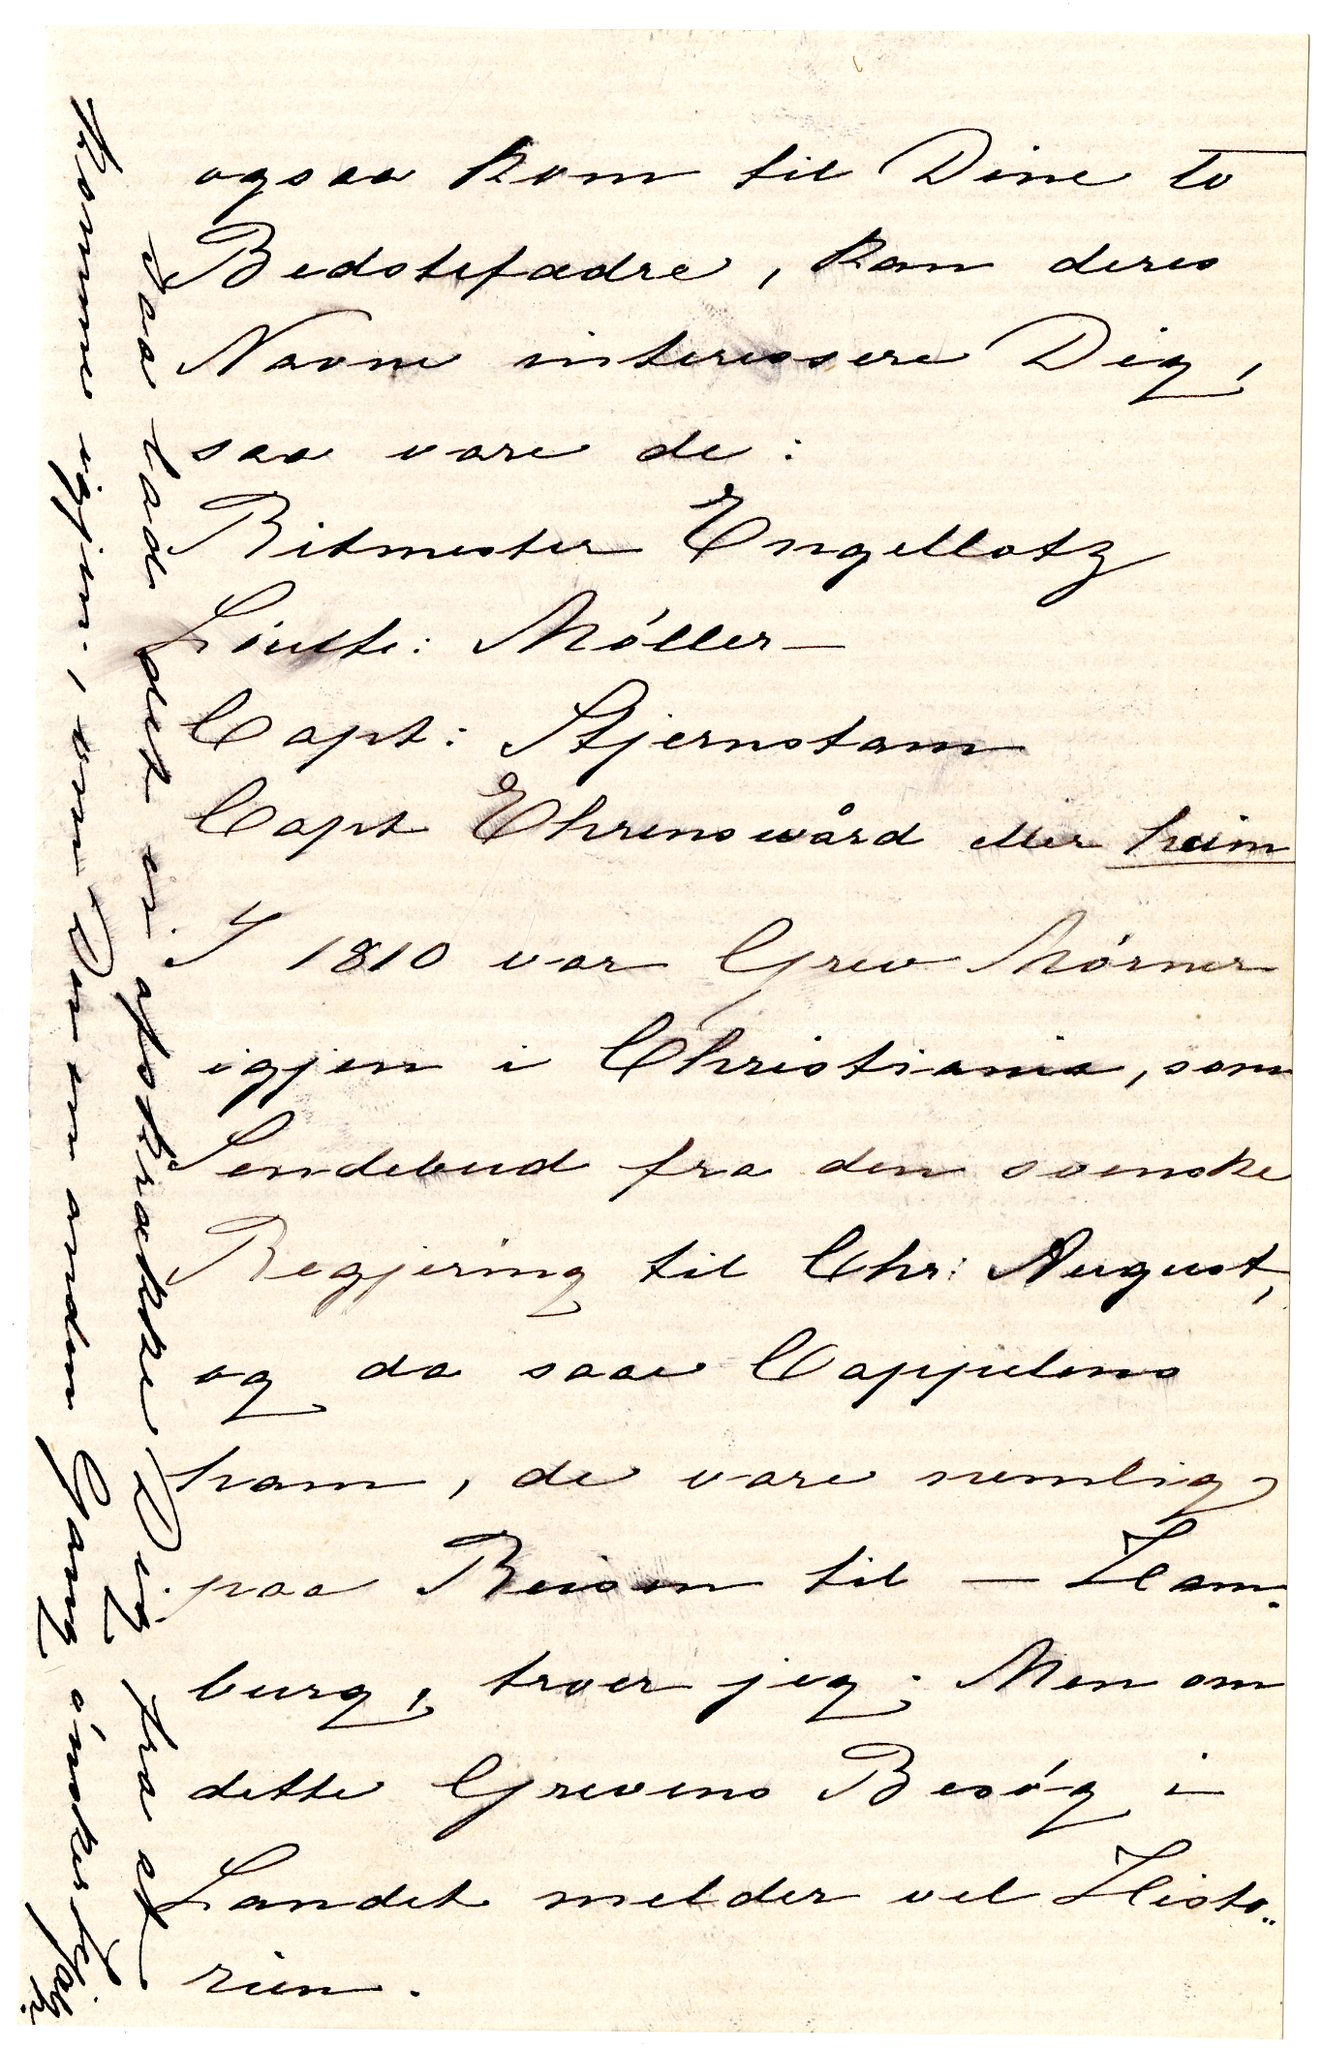 ogsaa kom til Dine to
Bedstefædre, kan deres
Navne interessere Dig,
saa vare de:
Ritmester Engellotz
Löutt: Möller—
Capt: Stjernstam
Capt Ehrenswård eller heim
I 1810 var Grev Mörner
igjen i Christiania, som
Sendebud fra den svenske
Regjering til Chr: August,
og da saae Cappelens
ham, de vare nemlig
paa Reisen til — Ham-
burg, troer jeg. Men om
dette Grevens Besög i
Landet melder vel Histo-
rien.
saa lad det ei afskrække Dig fra at
komme igjen, om Du en anden Gang önsker